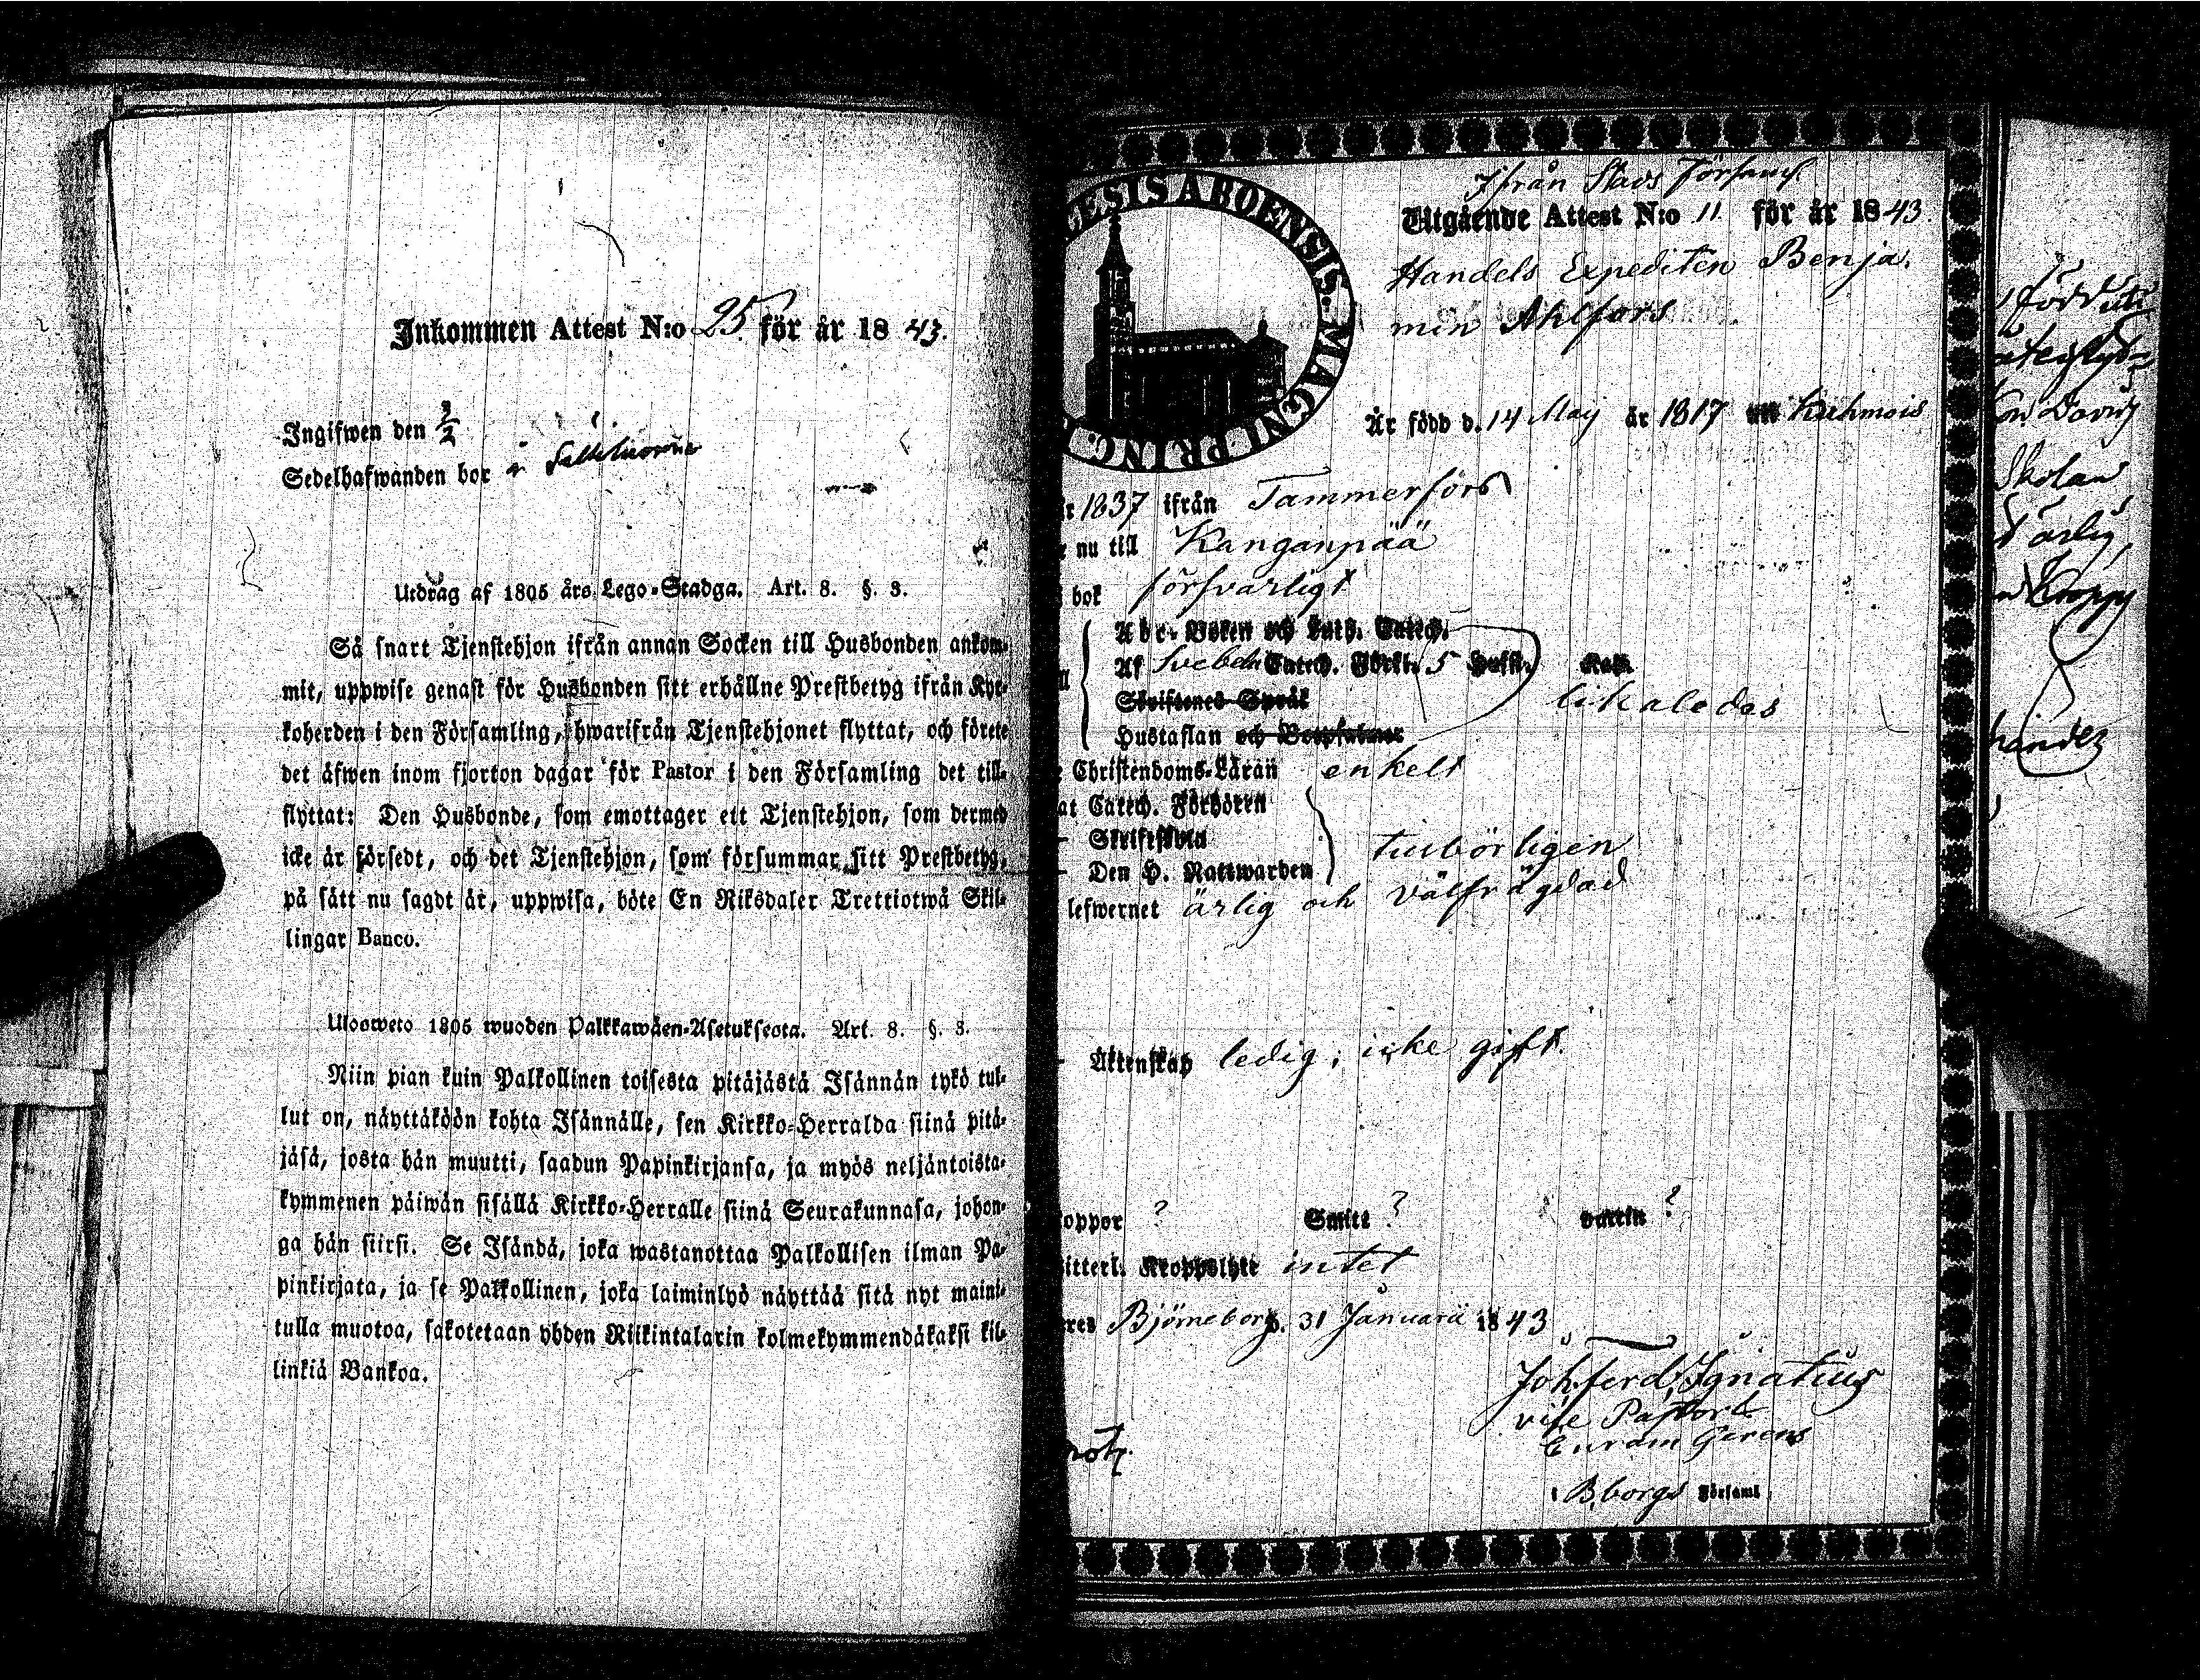 Inkommen Attest N:o 25 för år 1843.
Ingifwen den 9/2
Sedelhafwanden bor i
Utdrag af 1805 års Lego-Stadga. Art. 8. §. 3.
Så snart Tjenstehjon ifrån annan Socken till Husbonden ankom-
mit, uppwise genast för Husbonden sitt erhållne Prestbetyg ifrån Kyr-
koherden i den Församling, hwarifrån Tjenstehjonet flyttat, och förete
det äfwen inom fjorton dagar för Pastor i den Församling det till-
flyttat: Den Husbonde, som emottager ett Tjenstehjon, som dermed
icke är försedt, och det Tjenstehjon, som försummar sitt Prestbetyg,
på sätt nu sagdt är, uppwisa, böte En Riksdaler Trettiotwå Skil-
lingar Banco.
Uloosweto 1805 wuoden Palkkawäen-Asetuksesta. Art. 8. §. 3.
Niin pian kuin Palkollinen toisesta pitäjästä Isännän tykö tul-
lut on, näyttäköön kohta Isännälle, sen Kirkko-Herralda siinä pitä-
jäsä, josta hän muutti, saadun Papinkirjansa, ja myös neljäntoista-
kymmenen päiwän sisällä Kirkko-Herralle siinä Seurakunnasa, johon-
ga hän siirsi. Se Isändä, joka wastanottaa Palkollisen ilman Pa-
pinkirjata, ja se Palkollinen, joka laiminlyö näyttää sitä nyt maini-
tulla muotoa, sakotetaan yhden Riikintalarin kolmekymmendäkaksi kil-
linkiä Bankoa.
GESIS ABOENSIS. MAGNI PRINC.
Ifrån Stads Församl.
Utgående Attest N:o 11 för år 1843
Handels Expediten Benja-
min Ahlfors
Är född d. 14 Maij år 1817 uti Kuhmois
år 1837 ifrån Tammerfors
nu till Kanganpää
bok försvarligt
Abc-Boken och Luth. Catech.
Af Svebelii Catech. Förkl. 5 Hufst.
likaledes
Skriftenes Språk
Hustaflan och Botpsalmer
Christendoms-Läran enkelt
at Catech. Förhören
Skriftskola
tillbörligen
Den H. Nattwarden
lefwernet ärlig och välfrägdad
Äktenskap ledig; icke gift.
oppor ? Smitt ?
itterl. Kroppslyte intet
Björneborg d. 31 Januarii 1843
Joh. Ferd. Ignatius
vice Pastor &
Curam Gerens
i B.borgs Församl
född uti
David
Skolan
ärlig